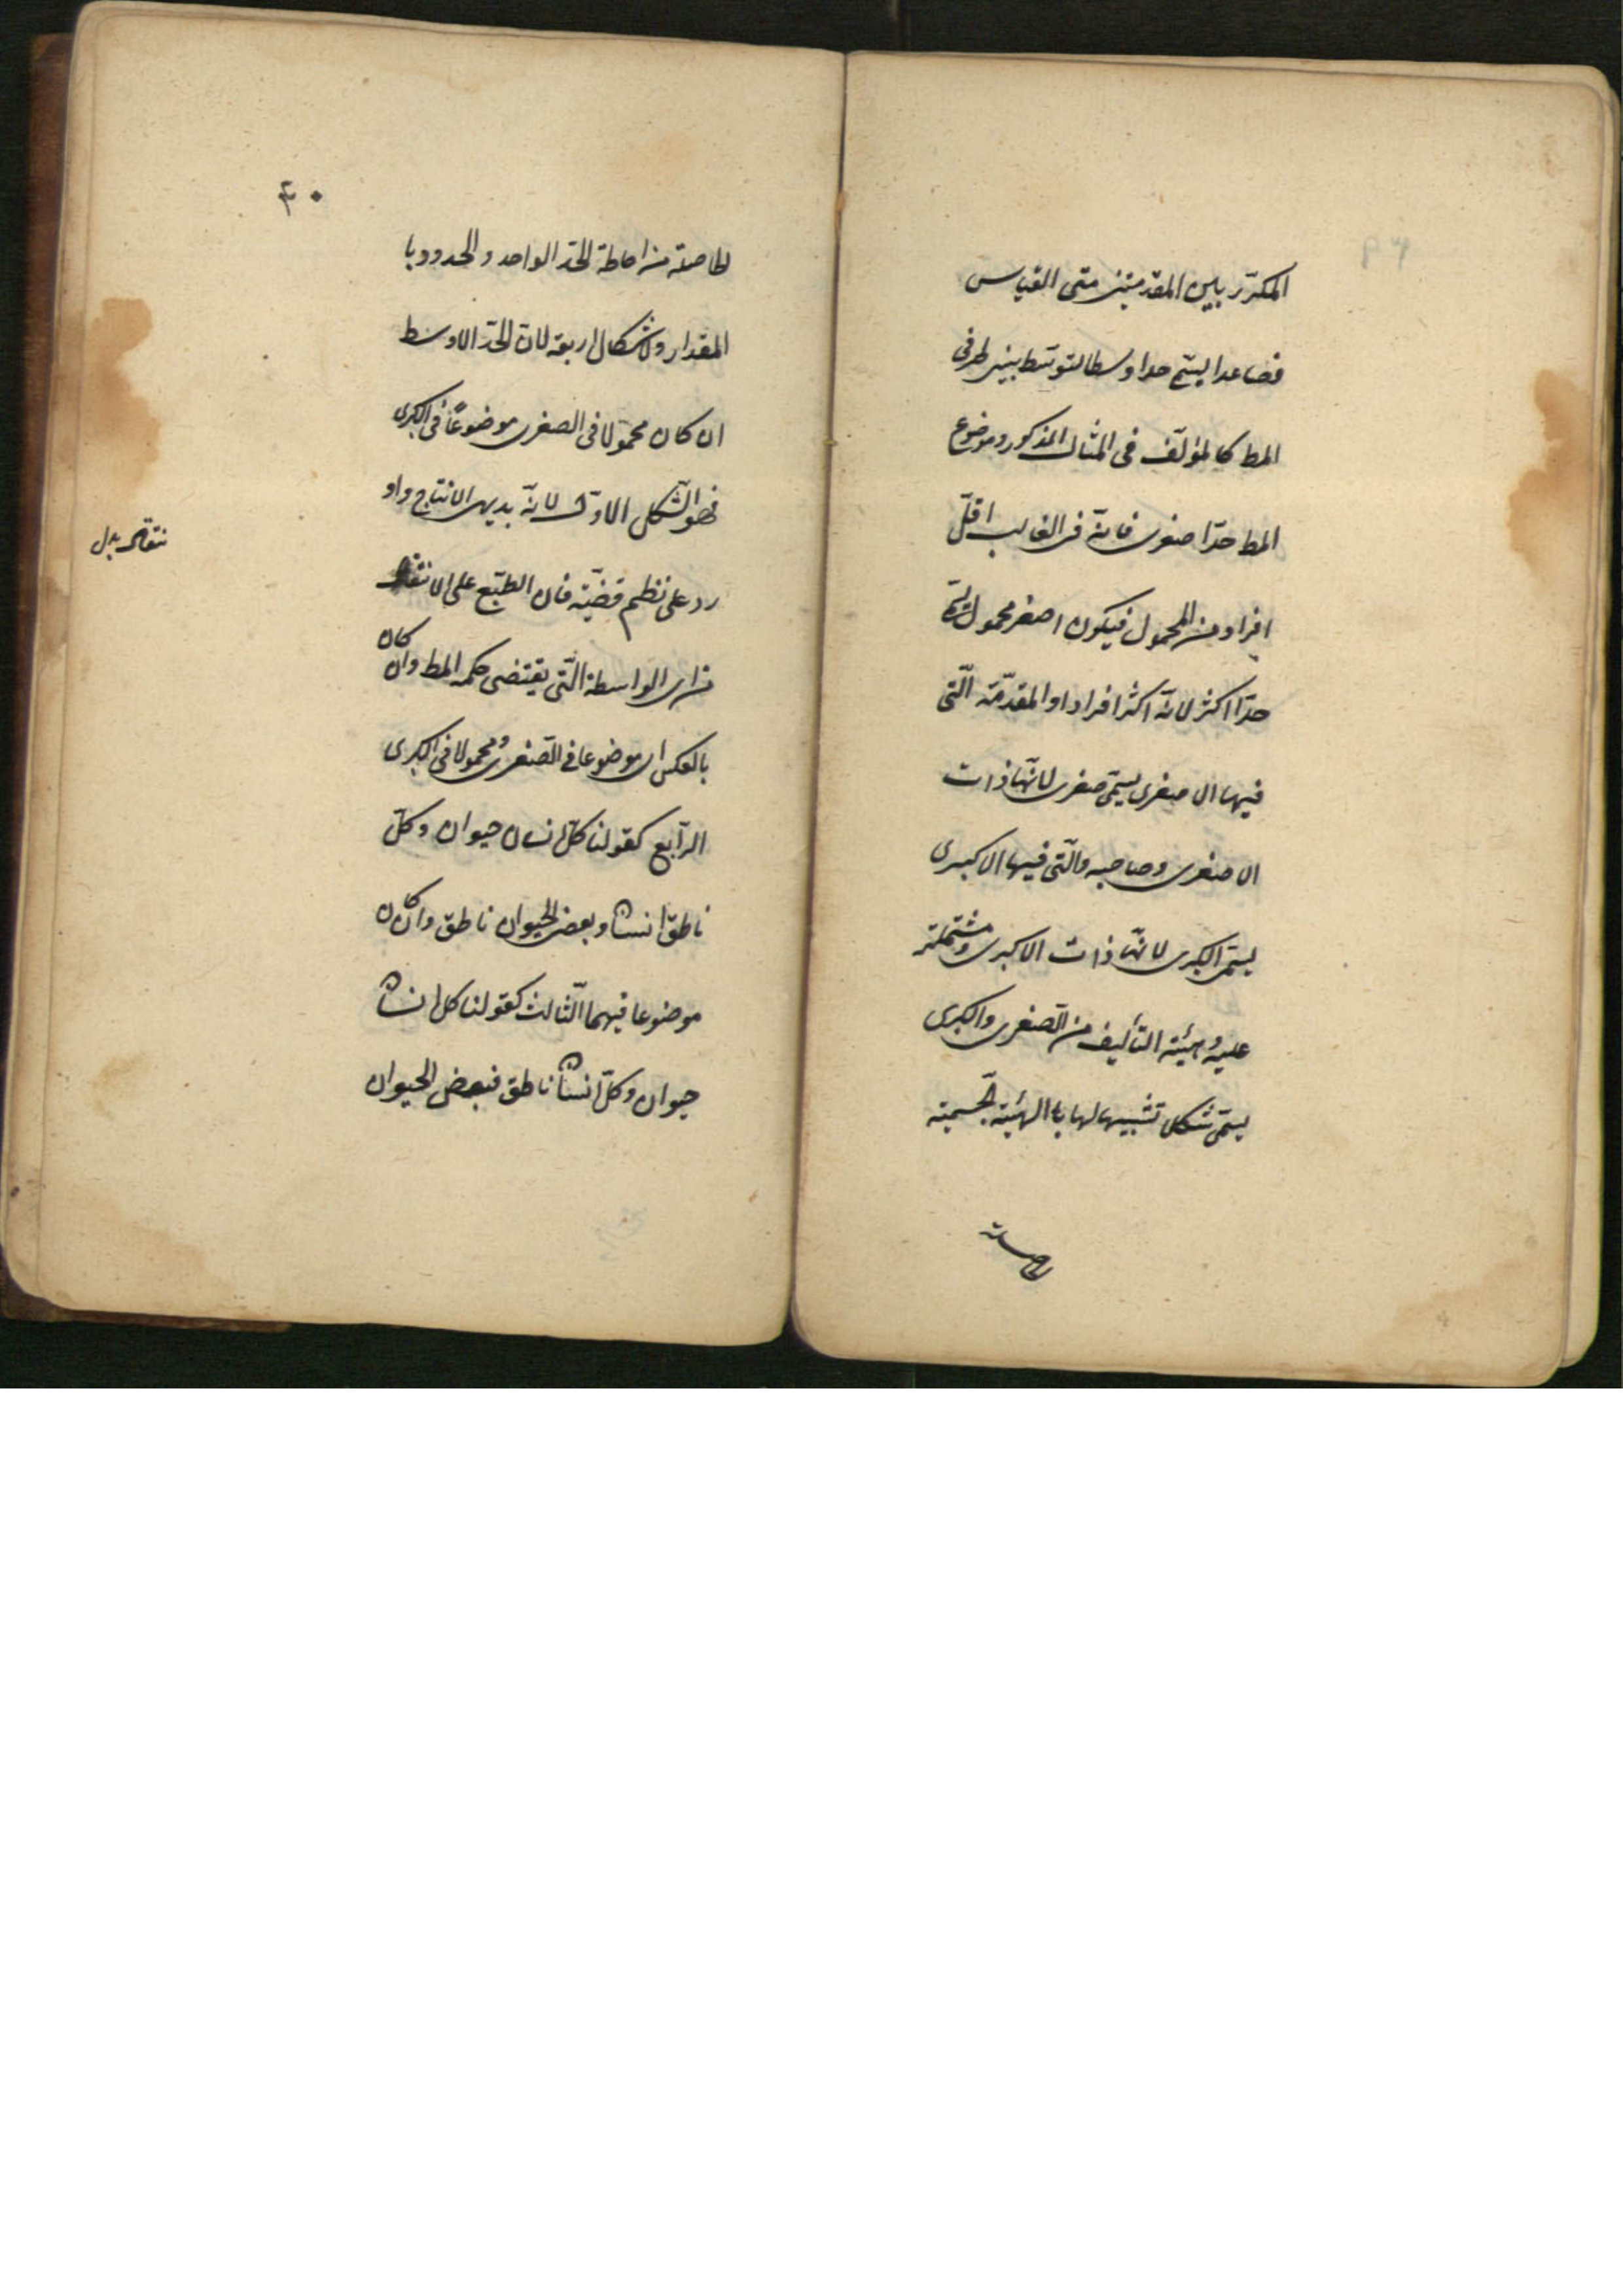 المكرّر بين المقدمتين متى القياس
فصاعدا يسمّى حدا وسطا لتوسّط بين طرفى
المط كالمؤلّف فى المثال المذكور وموضوع
المط حدّا صغرى فانه فى الغالب اقلّ
افراد من المحمول فيكون اصغر محمول
حدّا اكثر لانّه اكثر افرادا والمقدّمة الّتى
فيها الاصغرى يسمّى صغرى لانّها ذات
الاصغرى وصاحبه والّتى فيها الاكبرى
يسمّى الكبرى لانّها ذات الاكبرى ومشتملة
عليه وهيئة التأليف من الصّغرى والكبرى
يسمّى شكل تشبيها لها باالهيئة الجسمية
٤٠
الحاصلة من احاطة الحدّ الواحد والحدود با
المقدار والاشكال اربعة لانّ الحدّ الاوسط
ان كان محمولا فى الصغرى موضوعًا فى الكبرى
فهو الشّكل الاوّل لانّه بديهى الانتاج واو
رد على نظم قضيّة فان الطّبع على الانتقال
من اى الواسطة الّتى يقتضى حكم المط وان كان
بالعكس اى موضوعا فى الصّغرى ومحمولا فى الكبرى
الرّابع كقولنا كلّ انسان حيوان وكلّ
ناطق انسان وبعض الحيوان ناطق وان كان
موضوعا فيهما الثّالث كقولنا كل انسان
حيوان وكلّ انسان ناطق فبعض الحيوان